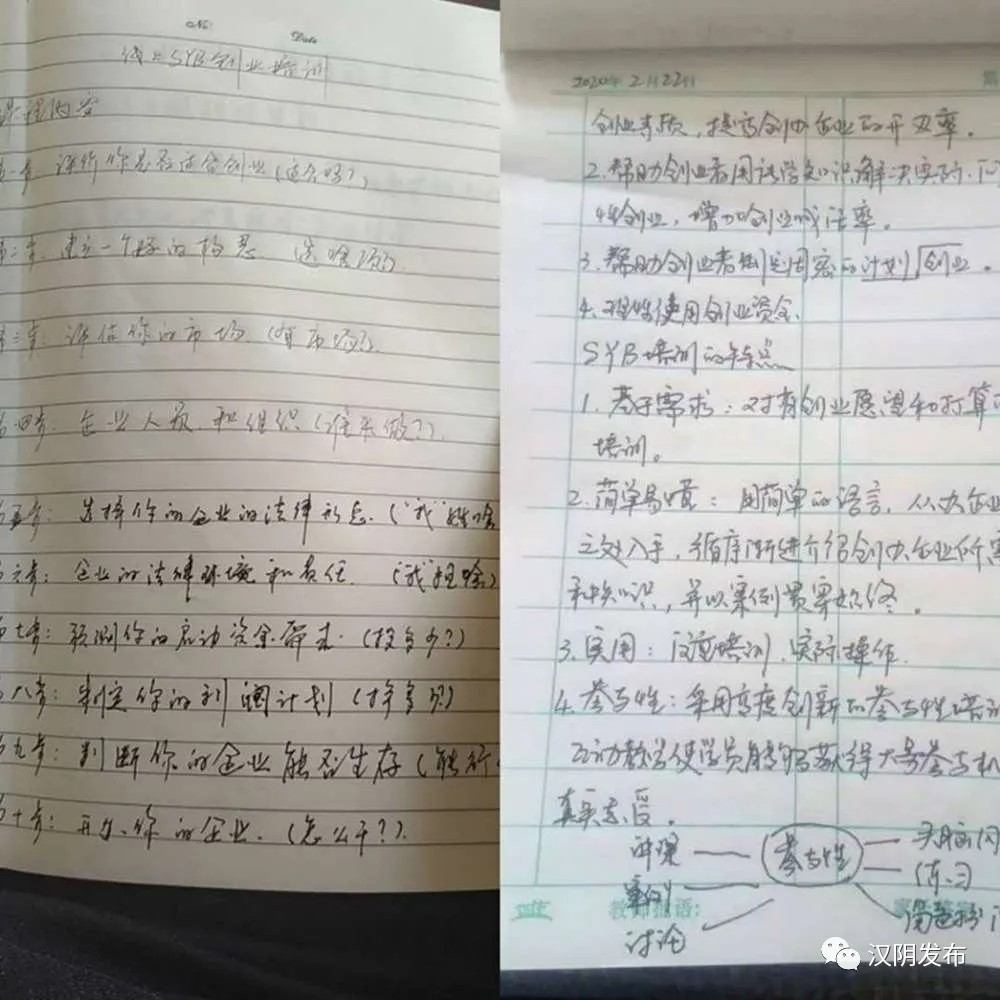 No:
Date
线上SYB创业培训
课程内容
第一步: 评价你是否适合创业(适合吗?)
第二步: 建立一个好的构思. 选啥项
第三步: 评估你的市场. (有市场?)
第四步: 企业人员和组织(谁来做?).
第五步: 选择你的企业的法律形态. ("我"姓啥
第六步: 企业的法律环境和责任. (我担啥)
第七步: 预测你的启动资金需求. (投多少?)
第八步: 制定你的利润计划(挣多少?)
第九步: 判断你的企业能否生存(能行
第十步: 开办你的企业. (怎么干?).
2020年2月22日
创业素质, 提高创办企业的开办率。
2. 帮助创业者用该学知识解决实际
创业, 增加创业成活率。
3. 帮助创业者制定周密的计划 创业。
4. 理性使用创业资金.
SYB培训的特点
1. 基于需求: 对有创业愿望和打算
培训。
2. 简单易懂: 用简单的语言, 从办企业
之处入手, 循序渐进介绍创办企业所需
和知识, 并以案例贯穿始终。
3. 实用: 注重培训, 实际操作.
4. 参与性: 采用高度创新的参与性培训
互动教学使学员能够获得大量参与机
真实感受。
讲课
参与性
头脑风
案例
练习
讨论
教师批语:
汉阴发布